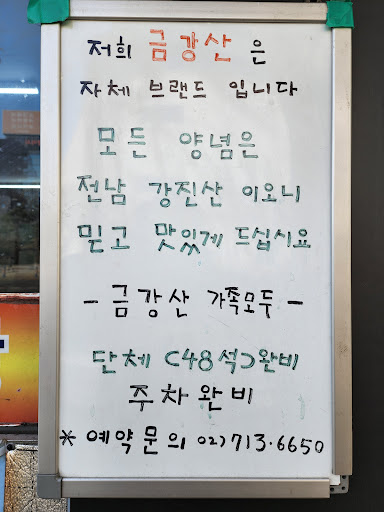 저희 금강산은
자체 브랜드 입니다
모든 양념은
전남 강진산 이오니
믿고 맛있게 드십시요
- 금강산 가족모두 -
단체 (48석)완비
주차완비
* 예약문의 02)713.6650